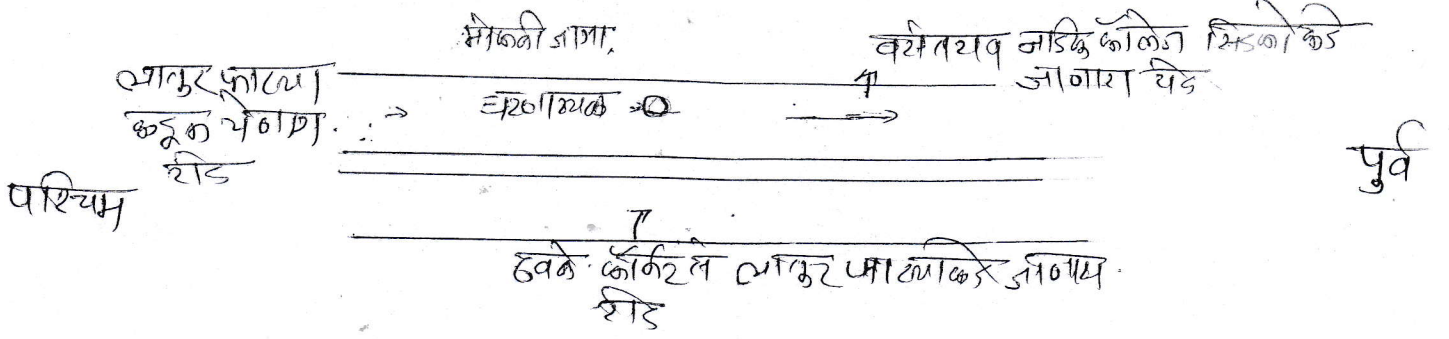 मोकळी जागा
वसंतराव नाईक कॉलेज सिडको कडे
जाणारा रोड
लातुर फाट्या
कडून येणारा
रोड
घटनास्थळ
पश्चिम
पुर्व
ढवळे कॉर्नर ते लातुर फाट्याकडे जाणारा
रोड